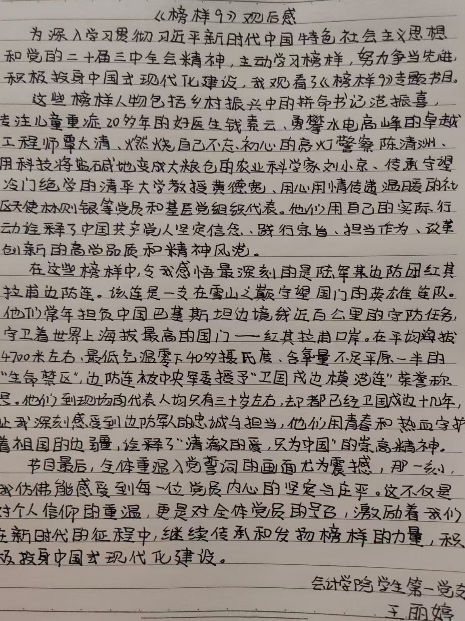 《榜样9》观后感
为深入学习贯彻习近平新时代中国特色社会主义思想
和党的二十届三中全会精神,主动学习榜样,努力争当先进,
积极投身中国式现代化建设,我观看了《榜样9》专题节目。
这些榜样人物包括乡村振兴中的拼命书记范振喜,
专注儿童重症20多年的好医生钱素云、勇攀水电高峰的卓越
工程师覃大清、燃烧自己不忘初心的高灯警察陈清洲、
用科技将盐碱地变成大粮仓的农业科学家刘小京、传承守望
冷门绝学的清华大学教授黄德宽、用心用情传递温暖的社
区天使林则银等党员和基层党组织代表。他们用自己的实际行
动诠释了中国共产党人坚定信念、践行宗旨、担当作为、改革
创新的高尚品质和精神风范。
在这些榜样中,令我感悟最深刻的是陆军某边防团红其
拉甫边防连。该连是一支在雪山之巅守望国门的英雄连队。
他们常年担负中国巴基斯坦边境线近百公里的守防任务,
守卫着世界上海拔最高的国门——红其拉甫口岸。在平均海拔
4700米左右、最低气温零下40多摄氏度、含氧量不足平原一半的
“生命禁区”,边防连被中央军委授予“卫国戍边模范连”荣誉称
号。他们到现场的代表人均只有三十岁左右,却都已经卫国戍边十几年,
让我深刻感受到边防军的忠诚与担当,他们用青春和热血守护
着祖国的边疆,诠释了“清澈的爱,只为中国”的崇高精神。
节目最后,全体重温入党誓词的画面尤为震撼,那一刻,
我仿佛能感受到每一位党员内心的坚定与庄严。这不仅是
对个人信仰的重温,更是对全体党员的号召,激励着我们
在新时代的征程中,继续传承和发扬榜样的力量,积
极投身中国式现代化建设。
会计学院学生第一党支
王丽婷